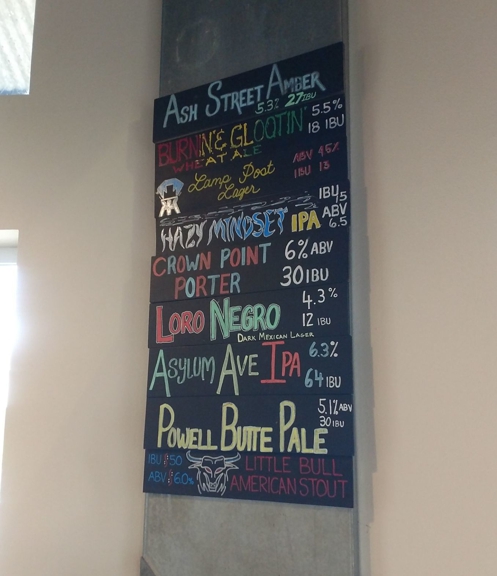 ASH STREET AMBER
5.3% 27 IBU
BURNIN' & GLOOTIN' 5.5%
WHEAT ALE 18 IBU
Lamp Post ABV 4.6%
Lager IBU 13
HAZY MINDSET IPA ABV
6.5
CROWN POINT 6% ABV
PORTER 30 IBU
LORO NEGRO 4.3%
12 IBU
DARK MEXICAN LAGER
ASYLUM AVE IPA 6.3%
64 IBU
POWELL BUTTE PALE 5.1% ABV
30 IBU
IBU 50 LITTLE BULL
ABV 6.0% AMERICAN STOUT